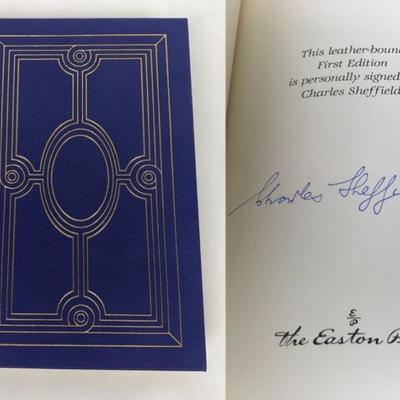 This leather-boun
First Edition
is personally signed
Charles Sheffield
Charles Sheff
E
P
the Easton P